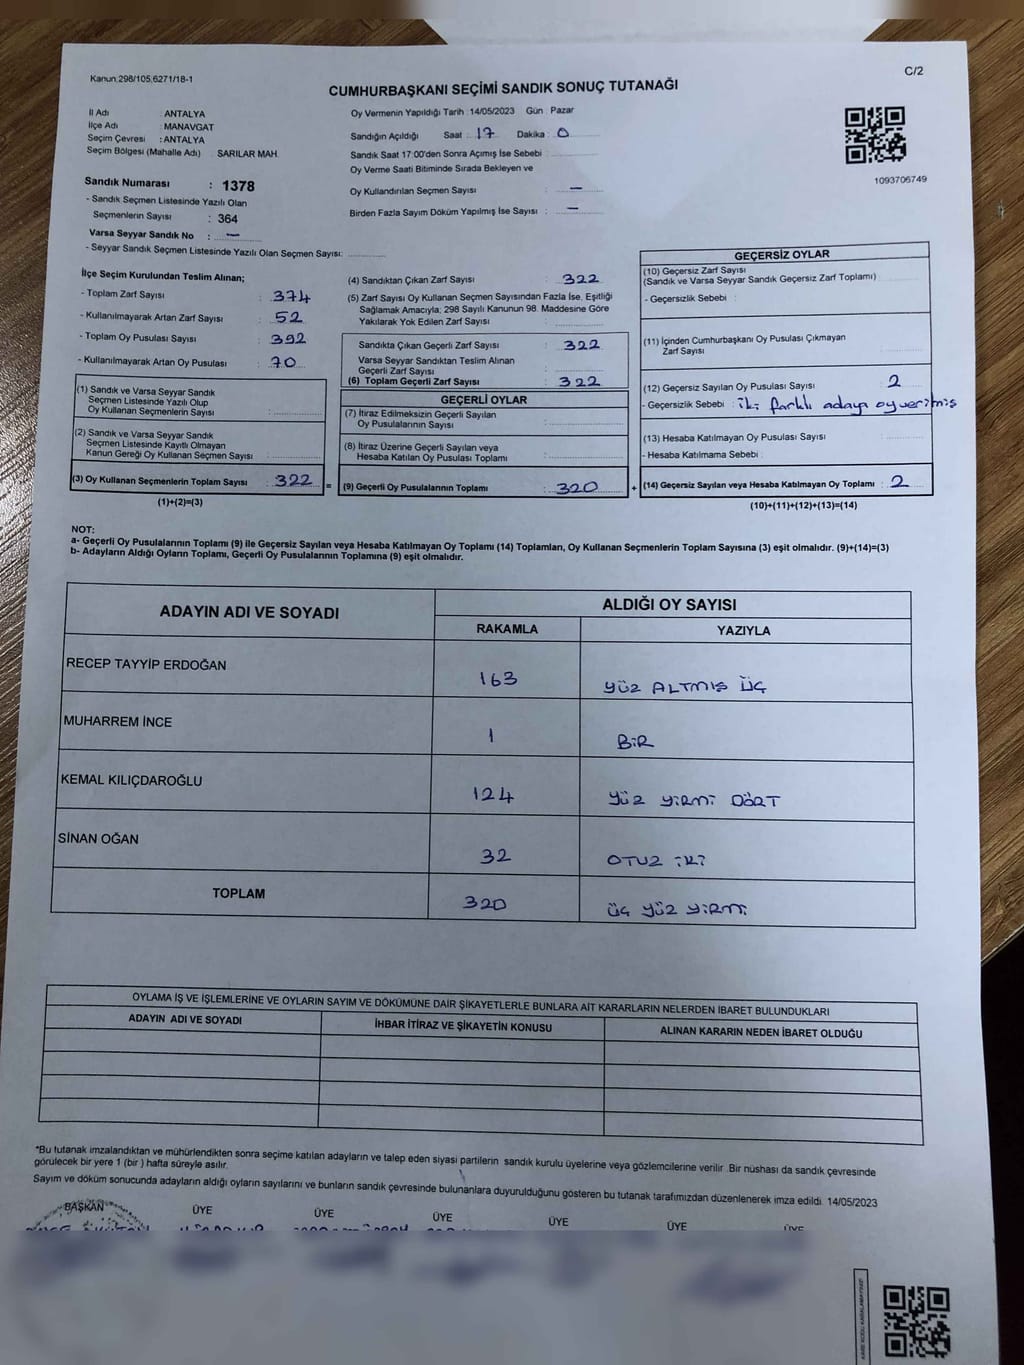 Kanun.298/105,6271/18-1
C/2
CUMHURBAŞKANI SEÇİMİ SANDIK SONUÇ TUTANAĞI
İl Adı : ANTALYA
İlçe Adı : MANAVGAT
Seçim Çevresi : ANTALYA
Seçim Bölgesi (Mahalle Adı) SARILAR MAH
Sandık Numarası : 1378
- Sandık Seçmen Listesinde Yazılı Olan
Seçmenlerin Sayısı : 364
Varsa Seyyar Sandık No : —
- Seyyar Sandık Seçmen Listesinde Yazılı Olan Seçmen Sayısı:
Oy Vermenin Yapıldığı Tarih :14/05/2023 Gün : Pazar
Sandığın Açıldığı Saat : 17 Dakika : 0
Sandık Saat 17:00'den Sonra Açımış İse Sebebi :
Oy Verme Saati Bitiminde Sırada Bekleyen ve
Oy Kullandırılan Seçmen Sayısı : —
Birden Fazla Sayım Döküm Yapılmış İse Sayısı : —
1093706749
İlçe Seçim Kurulundan Teslim Alınan;
- Toplam Zarf Sayısı : 374
- Kullanılmayarak Artan Zarf Sayısı : 52
- Toplam Oy Pusulası Sayısı : 392
- Kullanılmayarak Artan Oy Pusulası : 70
(1) Sandık ve Varsa Seyyar Sandık
Seçmen Listesinde Yazılı Olup
Oy Kullanan Seçmenlerin Sayısı :
(2) Sandık ve Varsa Seyyar Sandık
Seçmen Listesinde Kayıtlı Olmayan
Kanun Gereği Oy Kullanan Seçmen Sayısı :
(3) Oy Kullanan Seçmenlerin Toplam Sayısı : 322
(1)+(2)=(3)
=
(4) Sandıktan Çıkan Zarf Sayısı : 322
(5) Zarf Sayısı Oy Kullanan Seçmen Sayısından Fazla İse, Eşitliği
Sağlamak Amacıyla; 298 Sayılı Kanunun 98. Maddesine Göre
Yakılarak Yok Edilen Zarf Sayısı :
Sandıkta Çıkan Geçerli Zarf Sayısı : 322
Varsa Seyyar Sandıktan Teslim Alınan
Geçerli Zarf Sayısı :
(6) Toplam Geçerli Zarf Sayısı : 322
GEÇERLİ OYLAR
(7) İtiraz Edilmeksizin Geçerli Sayılan
Oy Pusulalarının Sayısı :
(8) İtiraz Üzerine Geçerli Sayılan veya
Hesaba Katılan Oy Pusulası Toplamı :
(9) Geçerli Oy Pusulalarının Toplamı : 320
+
GEÇERSİZ OYLAR
(10) Geçersiz Zarf Sayısı
(Sandık ve Varsa Seyyar Sandık Geçersiz Zarf Toplamı) :
- Geçersizlik Sebebi :
(11) İçinden Cumhurbaşkanı Oy Pusulası Çıkmayan
Zarf Sayısı :
(12) Geçersiz Sayılan Oy Pusulası Sayısı : 2
- Geçersizlik Sebebi : iki farklı adaya oy verilmiş
(13) Hesaba Katılmayan Oy Pusulası Sayısı :
- Hesaba Katılmama Sebebi :
(14) Geçersiz Sayılan veya Hesaba Katılmayan Oy Toplamı : 2
(10)+(11)+(12)+(13)=(14)
NOT:
a- Geçerli Oy Pusulalarının Toplamı (9) ile Geçersiz Sayılan veya Hesaba Katılmayan Oy Toplamı (14) Toplamları, Oy Kullanan Seçmenlerin Toplam Sayısına (3) eşit olmalıdır. (9)+(14)=(3)
b- Adayların Aldığı Oyların Toplamı, Geçerli Oy Pusulalarının Toplamına (9) eşit olmalıdır.
ADAYIN ADI VE SOYADI
ALDIĞI OY SAYISI
RAKAMLA YAZIYLA
RECEP TAYYİP ERDOĞAN 163 YÜZ ALTMIŞ ÜÇ
MUHARREM İNCE 1 BİR
KEMAL KILIÇDAROĞLU 124 YÜZ YİRMİ DÖRT
SİNAN OĞAN 32 OTUZ İKİ
TOPLAM 320 ÜÇ YÜZ YİRMİ
OYLAMA İŞ VE İŞLEMLERİNE VE OYLARIN SAYIM VE DÖKÜMÜNE DAİR ŞİKAYETLERLE BUNLARA AİT KARARLARIN NELERDEN İBARET BULUNDUKLARI
ADAYIN ADI VE SOYADI İHBAR İTİRAZ VE ŞİKAYETİN KONUSU ALINAN KARARIN NEDEN İBARET OLDUĞU
*Bu tutanak imzalandıktan ve mühürlendikten sonra seçime katılan adayların ve talep eden siyasi partilerin sandık kurulu üyelerine veya gözlemcilerine verilir. Bir nüshası da sandık çevresinde
görülecek bir yere 1 (bir ) hafta süreyle asılır.
Sayım ve döküm sonucunda adayların aldığı oyların sayılarını ve bunların sandık çevresinde bulunanlara duyurulduğunu gösteren bu tutanak tarafımızdan düzenlenerek imza edildi. 14/05/2023
BAŞKAN ÜYE ÜYE ÜYE ÜYE ÜYE ÜYE